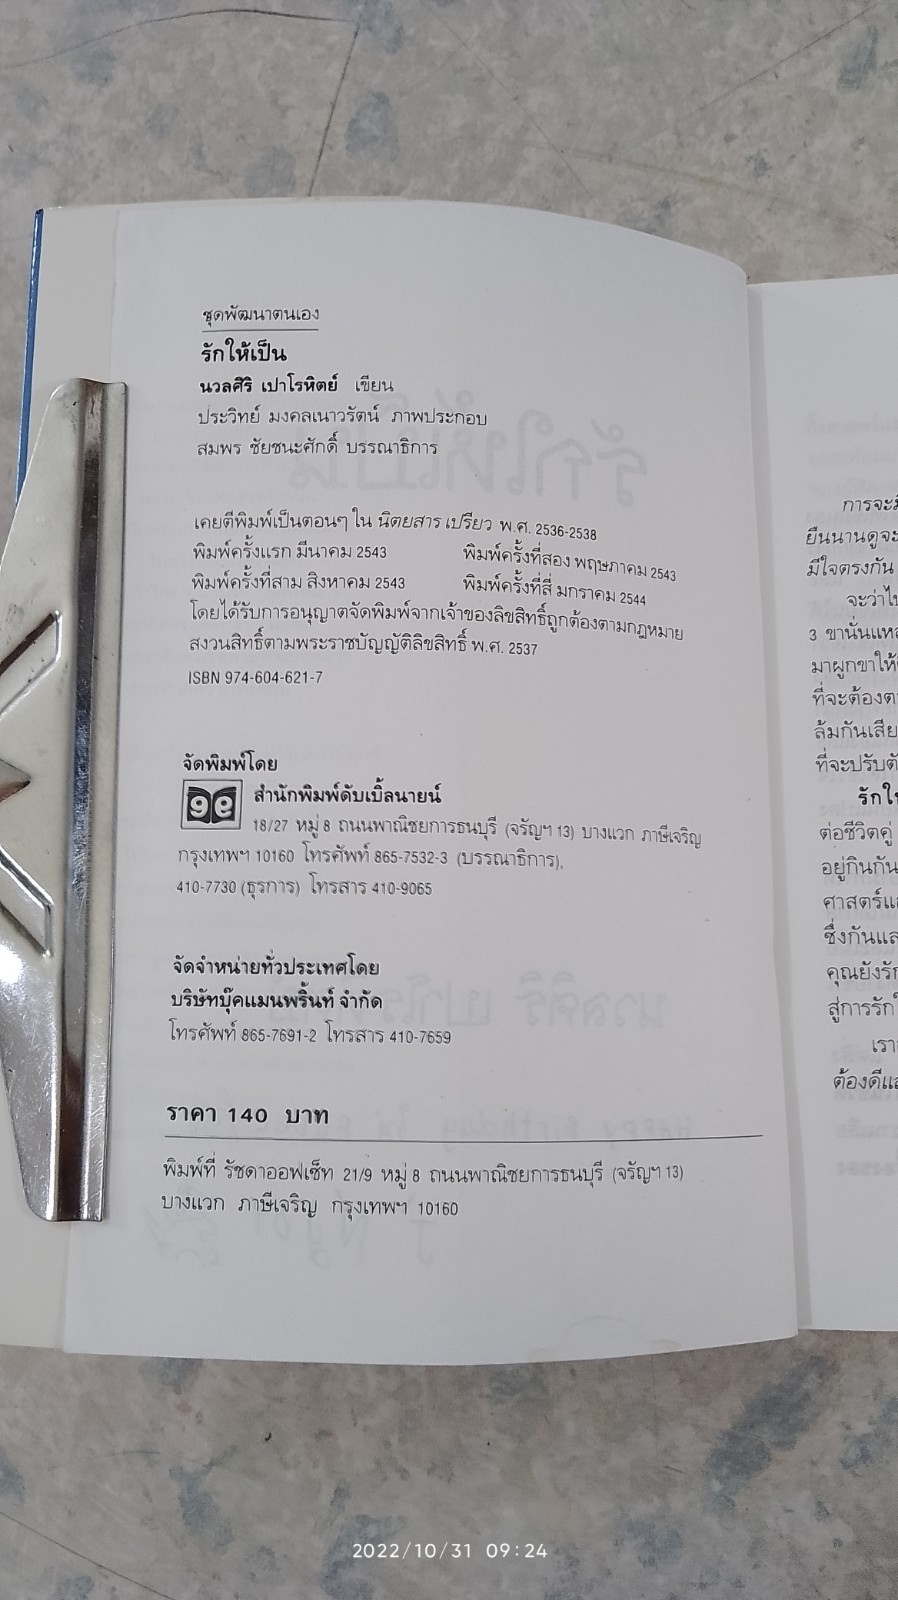 ชุดพัฒนาตนเอง
รักให้เป็น
นวลศิริ เปาโรหิตย์ เขียน
ประวิทย์ มงคลเนาวรัตน์ ภาพประกอบ
สมพร ชัยชนะศักดิ์ บรรณาธิการ
เคยตีพิมพ์เป็นตอนๆ ใน นิตยสาร เปรียว พ.ศ. 2536-2538
พิมพ์ครั้งแรก มีนาคม 2543 พิมพ์ครั้งที่สอง พฤษภาคม 2543
พิมพ์ครั้งที่สาม สิงหาคม 2543 พิมพ์ครั้งที่สี่ มกราคม 2544
โดยได้รับการอนุญาตจัดพิมพ์จากเจ้าของลิขสิทธิ์ถูกต้องตามกฎหมาย
สงวนสิทธิ์ตามพระราชบัญญัติลิขสิทธิ์ พ.ศ. 2537
ISBN 974-604-621-7
จัดพิมพ์โดย
สำนักพิมพ์ดับเบิ้ลนายน์
18/27 หมู่ 8 ถนนพาณิชยการธนบุรี (จรัญฯ 13) บางแวก ภาษีเจริญ
กรุงเทพฯ 10160 โทรศัพท์ 865-7532-3 (บรรณาธิการ),
410-7730 (ธุรการ) โทรสาร 410-9065
จัดจำหน่ายทั่วประเทศโดย
บริษัทบุ๊คแมนพริ้นท์ จำกัด
โทรศัพท์ 865-7691-2 โทรสาร 410-7659
ราคา 140 บาท
พิมพ์ที่ รัชดาออฟเซ็ท 21/9 หมู่ 8 ถนนพาณิชยการธนบุรี (จรัญฯ 13)
บางแวก ภาษีเจริญ กรุงเทพฯ 10160
ยืนนานดูจะ
มีใจตรงกัน
จะว่าไป
3 ขานั่นแหล
มาผูกขาให้
ที่จะต้อง
ล้มกันเสีย
ที่จะปรับ
รักให
ต่อชีวิตคู่
อยู่กินกัน
ศาสตร์แ
ซึ่งกันแล
คุณยังรัก
สู่การรัก
เรา
ต้องดีแ
2022/10/31 09:24